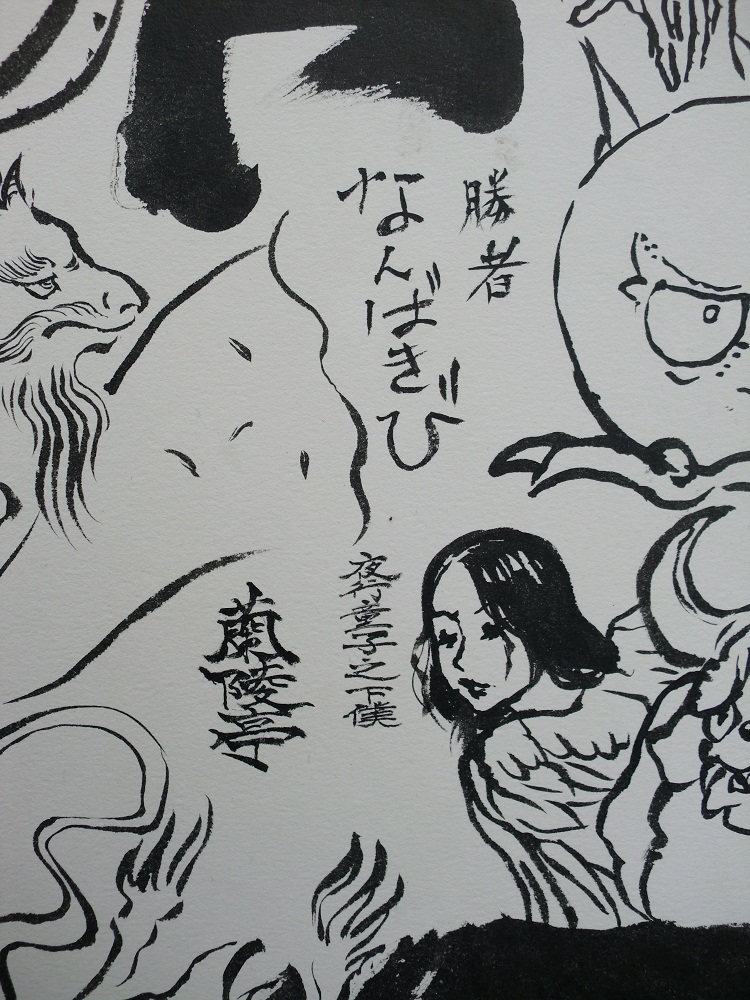 勝者
なんばきび
夜行童子之下僕
蘭陵亭